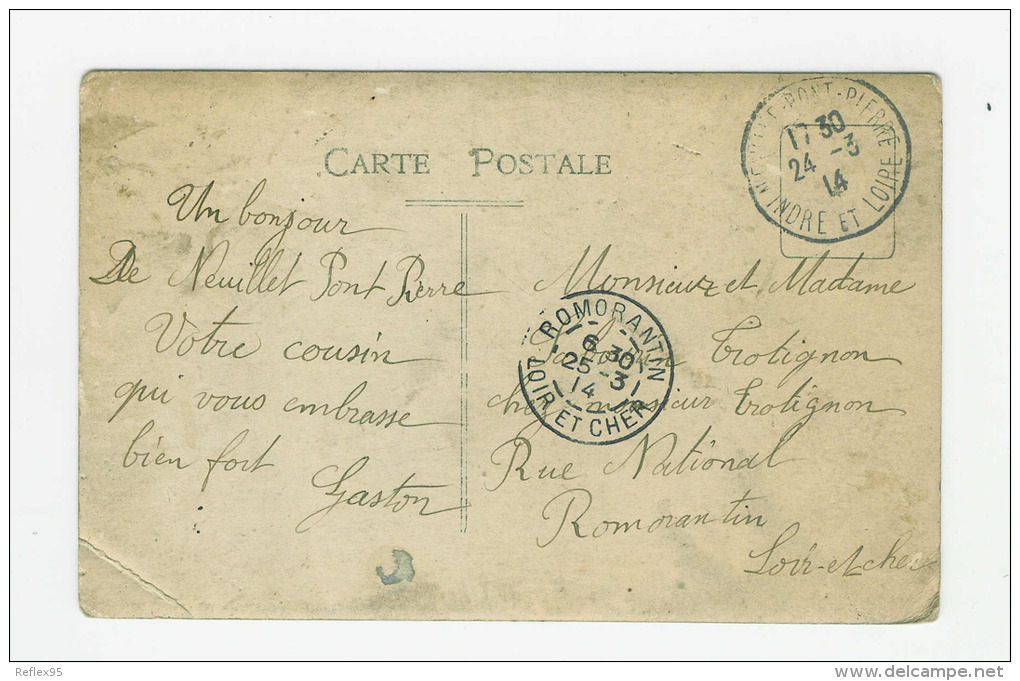 CARTE POSTALE
Un bonjour
De Neuillet Pont Pierre
Votre cousin
qui vous embrasse
bien fort
Gaston
PONT-PIERRE
17 30
24 -3
14
INDRE ET LOIRE
Monsieur et Madame
Trotignon
chez monsieur Trotignon
Rue National
Romorantin
Loir-et-cher
ROMORANTIN
6 30
25 -3
14
LOIR ET CHER
Reflex95
www.delcampe.net